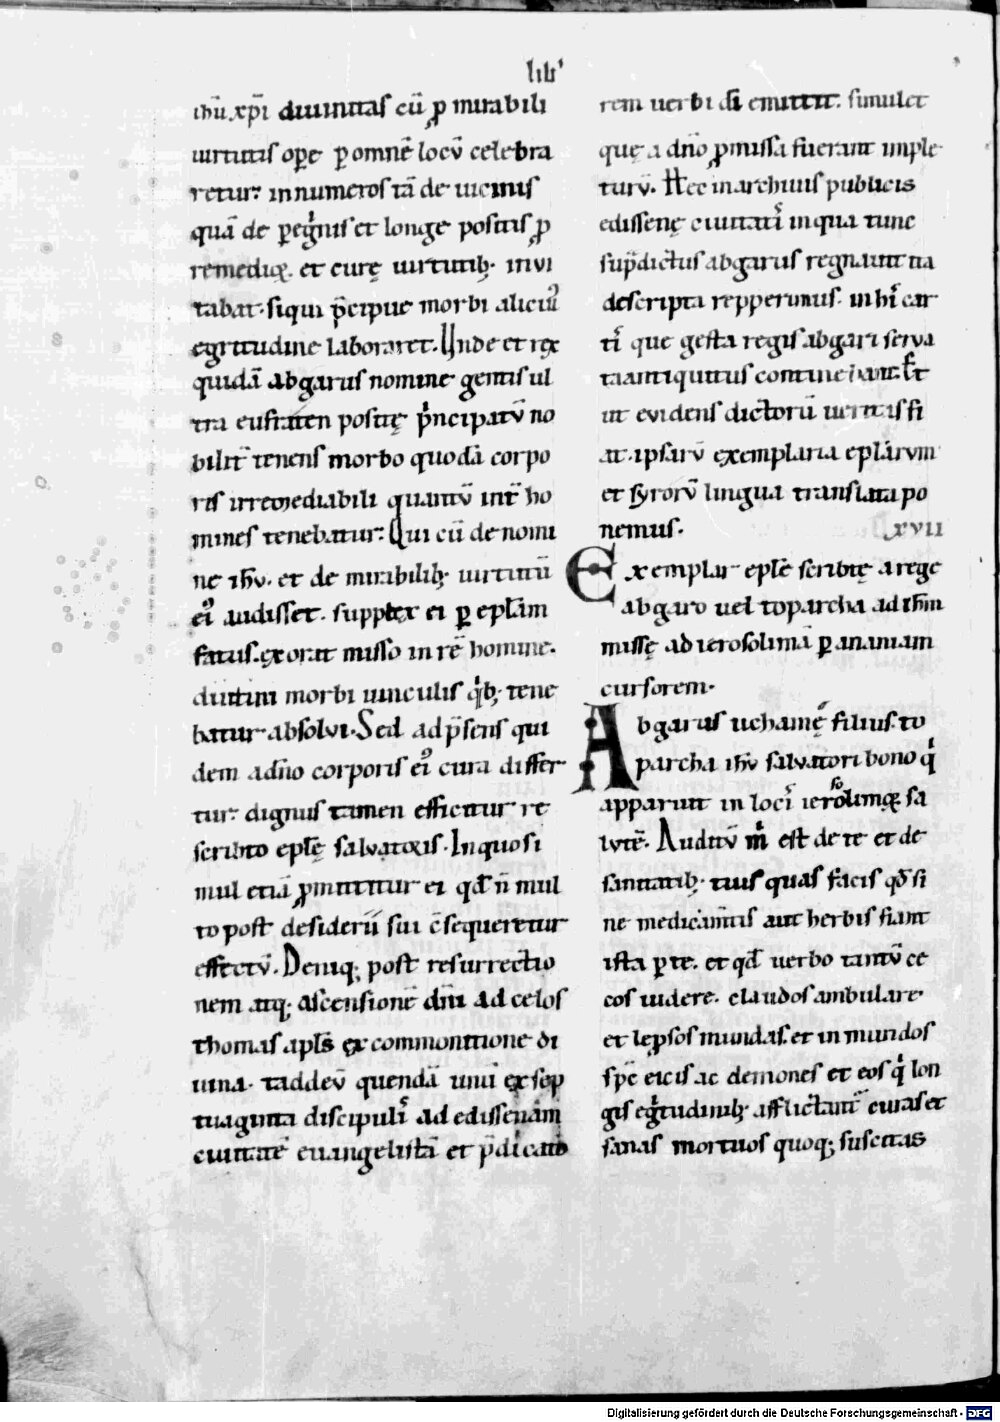 lib'
ihū xp̄i diuinitas cū ꝓ mirabili
uirtutis ope ꝑ omnē locū celebra
retur: innumeros tā de uicinis
quā de ꝑegͥnis et longe positis ꝓ
remediꝫ. et curę uirtutibꝫ. inui
tabat. siqui p̄cipue morbi alicuiꝰ
egritudine laboraret. Unde et rex
quidā abgarus nomine gentis ul
tra eufraten positę pͥncipatū no
bilit̄ tenens morbo quodā corpo
ris irremediabili quantū int̄ ho
mines tenebatur. Qui cū de nomi
ne ihū. et de mirabilibꝫ uirtutū
eiꝰ audisset. supplex ei ꝑ epl̄am
fatus. exorat misso in rē homine.
diutini morbi uinculis qͥbꝫ tene
batur absolui. Sed ad p̄sens qui
dem adn̄o corporis eiꝰ cura differ
tur. dignus tamen efficitur re
scribto epl̄ę saluatoris. In quo si
mul etiā ꝓmittitur ei qd̄ n̄ mul
to post desideriū sui c̄sequeretur
effectū. Deniqꝫ post resurrectio
nem atqꝫ ascensionē dn̄i ad celos
thomas apl̄s ex commonitione di
uina. taddeū quendā unū ex sep
tuaginta discipulis ad edissenam
ciuitatē euangelistā et p̄dicato
rem uerbi dī emittit. simulet
quę a dn̄o ꝓmissa fuerant imple
turū. Hec in archiuis publicis
edissenę ciuitatis in qua tunc
sup̄dictus abgarus regnauit ita
descripta repperimus. in his car
tis que gesta regis abgari serua
ta antiquitus continebant. S;
ut euidens dictorū ueritas fi
at. ipsarū exemplaria epl̄arum
et syrorū lingua translata po
nemus. xvii
Exemplar epl̄e scribtę a rege
abgaro uel toparcha ad ihm̄
missę ad ierosolimā ꝑ ananiam
cursorem.
Abgarus uchamę filius. to
parcha ihū saluatori bono qͥ
apparuit in locis ierosolimoꝝ sa
lutē. Auditū mͥ est de te et de
sanitatibꝫ tuis quas facis qd̄ si
ne medicam̄tis aut herbis fiant
ista ꝑ te. et qd̄ uerbo tantū ce
cos uidere. claudos ambulare.
et leprosos mundas. et in mundos
sp̄c eicis ac demones et eos qͥ lon
gis egͥtudinibꝫ afflictant̄ curas et
sanas mortuos quoqꝫ suscitas
Digitalisierung gefördert durch die Deutsche Forschungsgemeinschaft - DFG